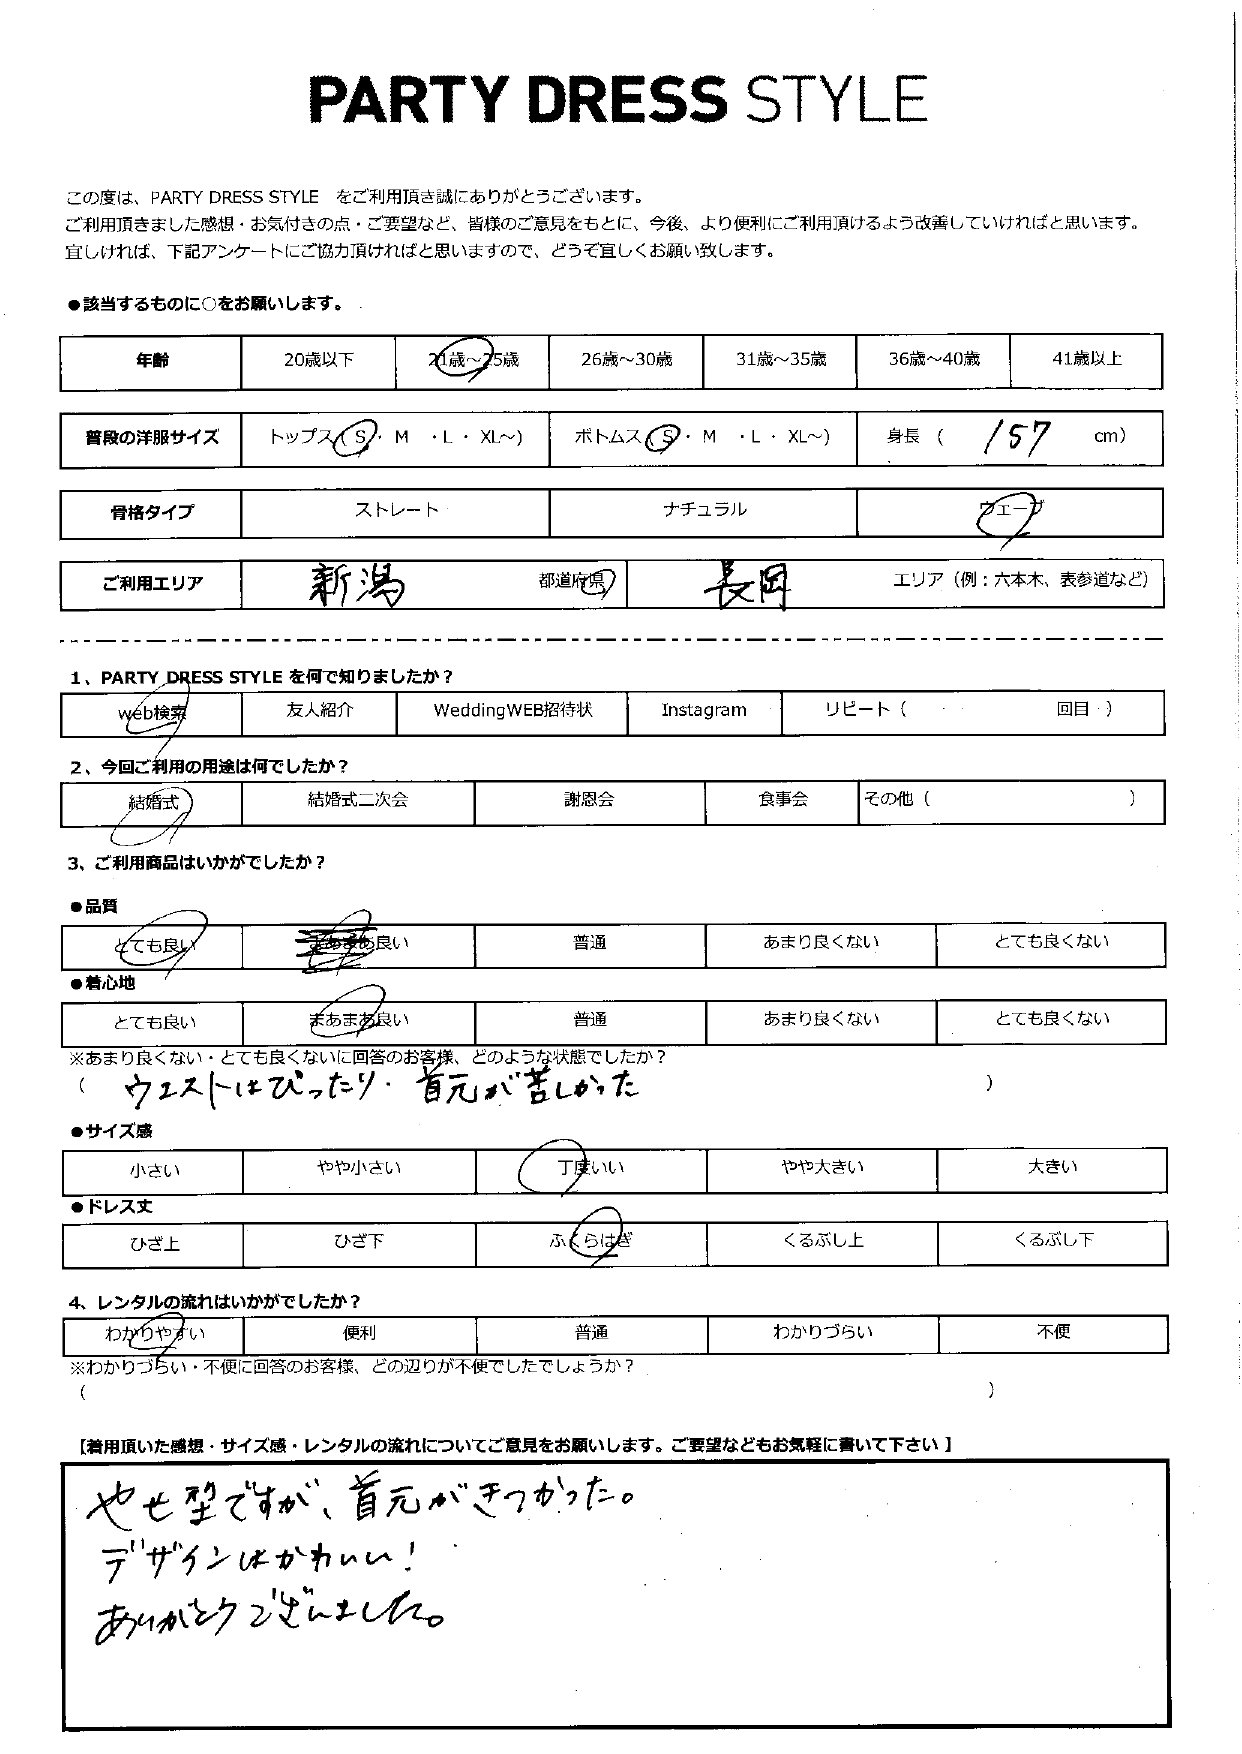 PARTY DRESS STYLE
この度は、PARTY DRESS STYLE をご利用頂き誠にありがとうございます。
ご利用頂きました感想・お気付きの点・ご要望など、皆様のご意見をもとに、今後、より便利にご利用頂けるよう改善していければと思います。
宜しければ、下記アンケートにご協力頂ければと思いますので、どうぞ宜しくお願い致します。
●該当するものに○をお願いします。
年齢 20歳以下 21歳～25歳 26歳～30歳 31歳～35歳 36歳～40歳 41歳以上
普段の洋服サイズ トップス（ S ・ M ・L ・ XL～) ボトムス（ S ・ M ・L ・ XL～) 身長 （ 157 cm）
骨格タイプ ストレート ナチュラル ウェーブ
ご利用エリア 新潟 都道府県 長岡 エリア（例：六本木、表参道など）
1、PARTY DRESS STYLE を何で知りましたか？
web検索 友人紹介 WeddingWEB招待状 Instagram リピート（ 回目 ）
2、今回ご利用の用途は何でしたか？
結婚式 結婚式二次会 謝恩会 食事会 その他（ ）
3、ご利用商品はいかがでしたか？
●品質
とても良い まあまあ良い 普通 あまり良くない とても良くない
●着心地
とても良い まあまあ良い 普通 あまり良くない とても良くない
※あまり良くない・とても良くないに回答のお客様、どのような状態でしたか？
（ ウエストはぴったり・首元が苦しかった ）
●サイズ感
小さい やや小さい 丁度いい やや大きい 大きい
●ドレス丈
ひざ上 ひざ下 ふくらはぎ くるぶし上 くるぶし下
4、レンタルの流れはいかがでしたか？
わかりやすい 便利 普通 わかりづらい 不便
※わかりづらい・不便に回答のお客様、どの辺りが不便でしたでしょうか？
（ ）
【着用頂いた感想・サイズ感・レンタルの流れについてご意見をお願いします。ご要望などもお気軽に書いて下さい 】
やせ型ですが、首元がきつかった。
デザインはかわいい！
ありがとうございました。